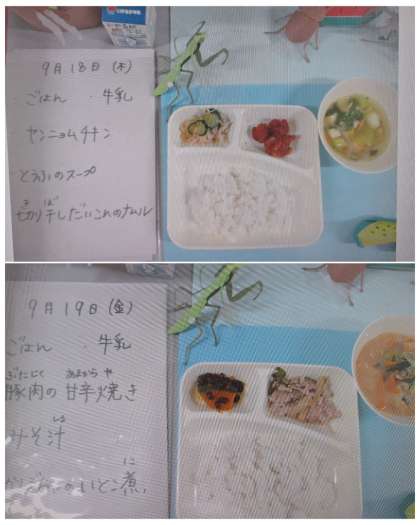 9月18日(木)
ごはん ・牛乳
ヤンニョムチキン
とうふのスープ
切り干しだいこんのナムル
9月19日(金)
ごはん ・牛乳
ぶたにく あまから や
豚肉の甘辛焼き
しる
みそ汁
に
のいとこ煮